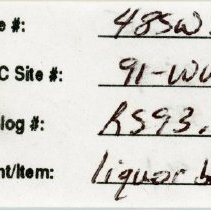 e #: 48SW
C Site #: 91-WW
log #: RS93.
nt/Item: liquor b